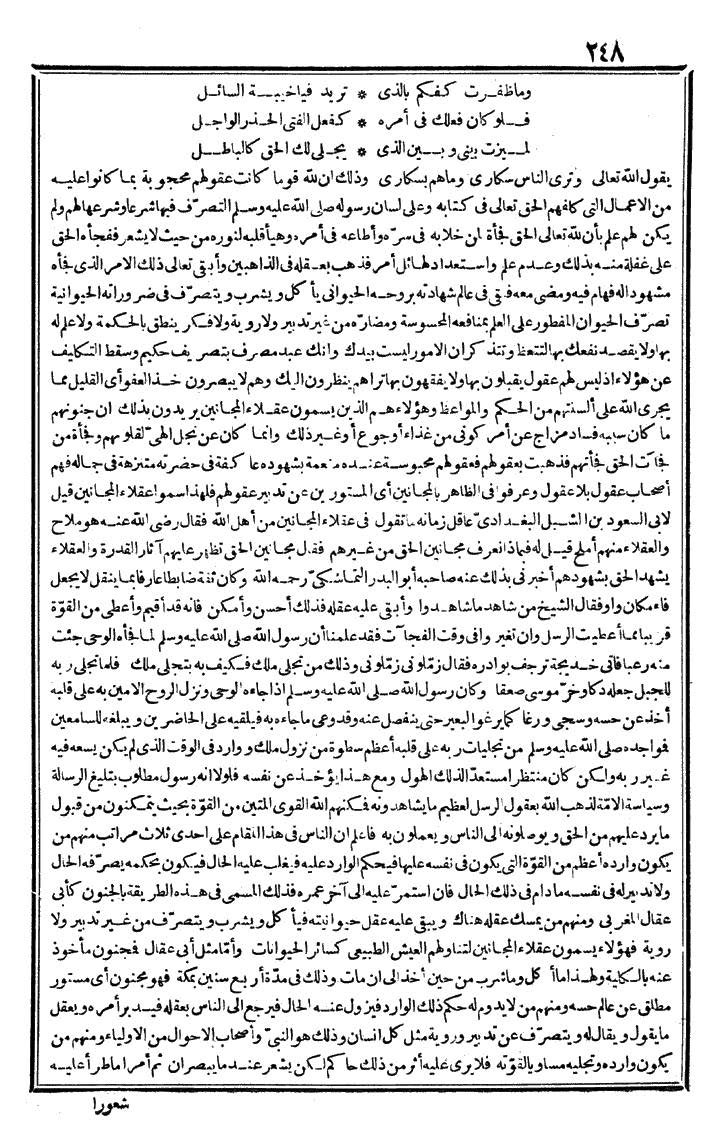 ٢٤٨
وما ظفرت كفكم بالذى * تريد فياخيبة السائل
فلو كان فعلك فى أمره * كفعل الفتى الحذر الواجل
لميزت بينى وبين الذى * يجلى لك الحق كالباطل
يقول الله تعالى وترى الناس سكارى وماهم بسكارى وذلك ان لله قوما كانت عقولهم محجوبة بما كانوا عليه
من الاعمال التى كلفهم الحق تعالى فى كتابه وعلى لسان رسوله صلى الله عليه وسلم التصرّف فيها شرعا وشرعها لهم ولم
يكن لهم علم بأن لله تعالى الحق فجأة لمن خلا به فى سرّه وأطاعه فى أمره وهيأ قلبه لنوره من حيث لا يشعر ففجأه الحق
على غفلة منه بذلك وعدم علم واستعداد لهائل أمر فذهب بعقله فى الذاهبين وأبقى تعالى ذلك الامر الذى فجأه
مشهودا له فهام فيه ومضى معه فبقى فى عالم شهادته بروحه الحيوانى يأكل ويشرب ويتصرّف فى ضروراته الحيوانية
تصرّف الحيوان المفطور على العلم بمنافعه المحسوسة ومضارّه من غير تدبير ولا روية ولا فكر ينطق بالحكمة ولا علم له
بها ولا يقصد نفعك بها لتتعظ وتتذكر ان الامور ليست بيدك وانك عبد مصرف بتصريف حكيم وسقط التكليف
عن هؤلاء اذ ليس لهم عقول يقبلون بها ولا يفقهون بها تراهم ينظرون اليك وهم لا يبصرون خذ العفو أى القليل مما
يجرى الله على ألسنتهم من الحكم والمواعظ وهؤلاء هم الذين يسمون عقلاء المجانين يريدون بذلك ان جنونهم
ما كان سببه فساد مزاج عن أمر كونى من غذاء أو جوع أو غير ذلك وانما كان عن تجل الهىّ لقلوبهم وفجأة من
فجآت الحق فجأتهم فذهبت بعقولهم فعقولهم محبوسة عنده منعمة بشهوده عاكفة فى حضرته متنزهة فى جماله فهم
أصحاب عقول بلا عقول وعرفوا فى الظاهر بالمجانين أى المستورين عن تدبير عقولهم فلهذا سموا عقلاء المجانين قيل
لابى السعود بن الشبل البغدادىّ عاقل زمانه ما تقول فى عقلاء المجانين من أهل الله فقال رضى الله عنه هو ملاح
والعقلاء منهم أملح قيل له فبماذا نعرف مجانين الحق من غيرهم فقال مجانين الحق تظهر عليهم آثار القدرة والعقلاء
يشهد الحق بشهودهم أخبرنى بذلك عنه صاحبه أبو البدر التماشكىّ رحمه الله وكان ثقة ضابطا عارفا بما ينقل لا يجعل
فاء مكان واو فقال الشيخ من شاهد ما شاهدوا وأبقى عليه عقله فذلك أحسن وأمكن فانه قد أقيم وأعطى من القوّة
قريبا مما أعطيت الرسل وان تغيروا فى وقت الفجآت فقد علمنا أن رسول الله صلى الله عليه وسلم لما فجأه الوحى جئت
منه رعبا فاتى خديجة ترجف بوادره فقال زمّلونى زمّلونى وذلك من تجلى ملك فكيف به بتجلى ملك فلما تجلى ربه
للجبل جعله دكا وخرّ موسى صعقا وكان رسول الله صلى الله عليه وسلم اذا جاءه الوحى ونزل الروح الامين به على قلبه
أخذ عن حسه وسجى ورغا كما يرغو البعير حتى ينفصل عنه وقد وعى ما جاءه به فيلقيه على الحاضرين ويبلغه للسامعين
فمواجده صلى الله عليه وسلم من تجليات ربه على قلبه أعظم سطوة من نزول ملك ووارد فى الوقت الذى لم يكن يسعه فيه
غير ربه ولكن كان منتظرا مستعدّا لذلك الهول ومع هذا يؤخذ عن نفسه فلولا انه رسول مطلوب بتبليغ الرسالة
وسياسة الامّة لذهب الله بعقول الرسل لعظيم ما يشاهدونه فمكنهم الله القوى المتين من القوّة بحيث يتمكنون من قبول
ما يرد عليهم من الحق ويوصلونه الى الناس ويعملون به فاعلم ان الناس فى هذا المقام على احدى ثلاث مراتب منهم من
يكون وارده أعظم من القوّة التى يكون فى نفسه عليها فيحكم الوارد عليه فيغلب عليه الحال فيكون بحكمه يصرّفه الحال
ولا تدبير له فى نفسه مادام فى ذلك الحال فان استمرّ عليه الى آخر عمره فذلك المسمى فى هذه الطريقة بالجنون كأبى
عقال المغربى ومنهم من يمسك عقله هناك ويبقى عليه عقل حيوانيته فيأكل ويشرب ويتصرّف من غير تدبير ولا
روية فهؤلاء يسمون عقلاء المجانين لتناولهم العيش الطبيعى كسائر الحيوانات وأمّا مثل أبى عقال فمجنون مأخوذ
عنه بالكلية ولهذا ما أكل وما شرب من حين أخذ الى ان مات وذلك فى مدّة أربع سنين بمكة فهو مجنون أى مستور
مطلق عن عالم حسه ومنهم من لا يدوم له حكم ذلك الوارد فيزول عنه الحال فيرجع الى الناس بعقله فيدبر أمره ويعقل
ما يقول ويقال له ويتصرّف عن تدبير وروية مثل كل انسان وذلك هو النبىّ وأصحاب الاحوال من الاولياء ومنهم من
يكون وارده وتجليه مساويا لقوّته فلا يرى عليه أثر من ذلك حاكم لكن يشعر عند ما يبصر ان ثم أمرا ما طرأ عليه
شعورا